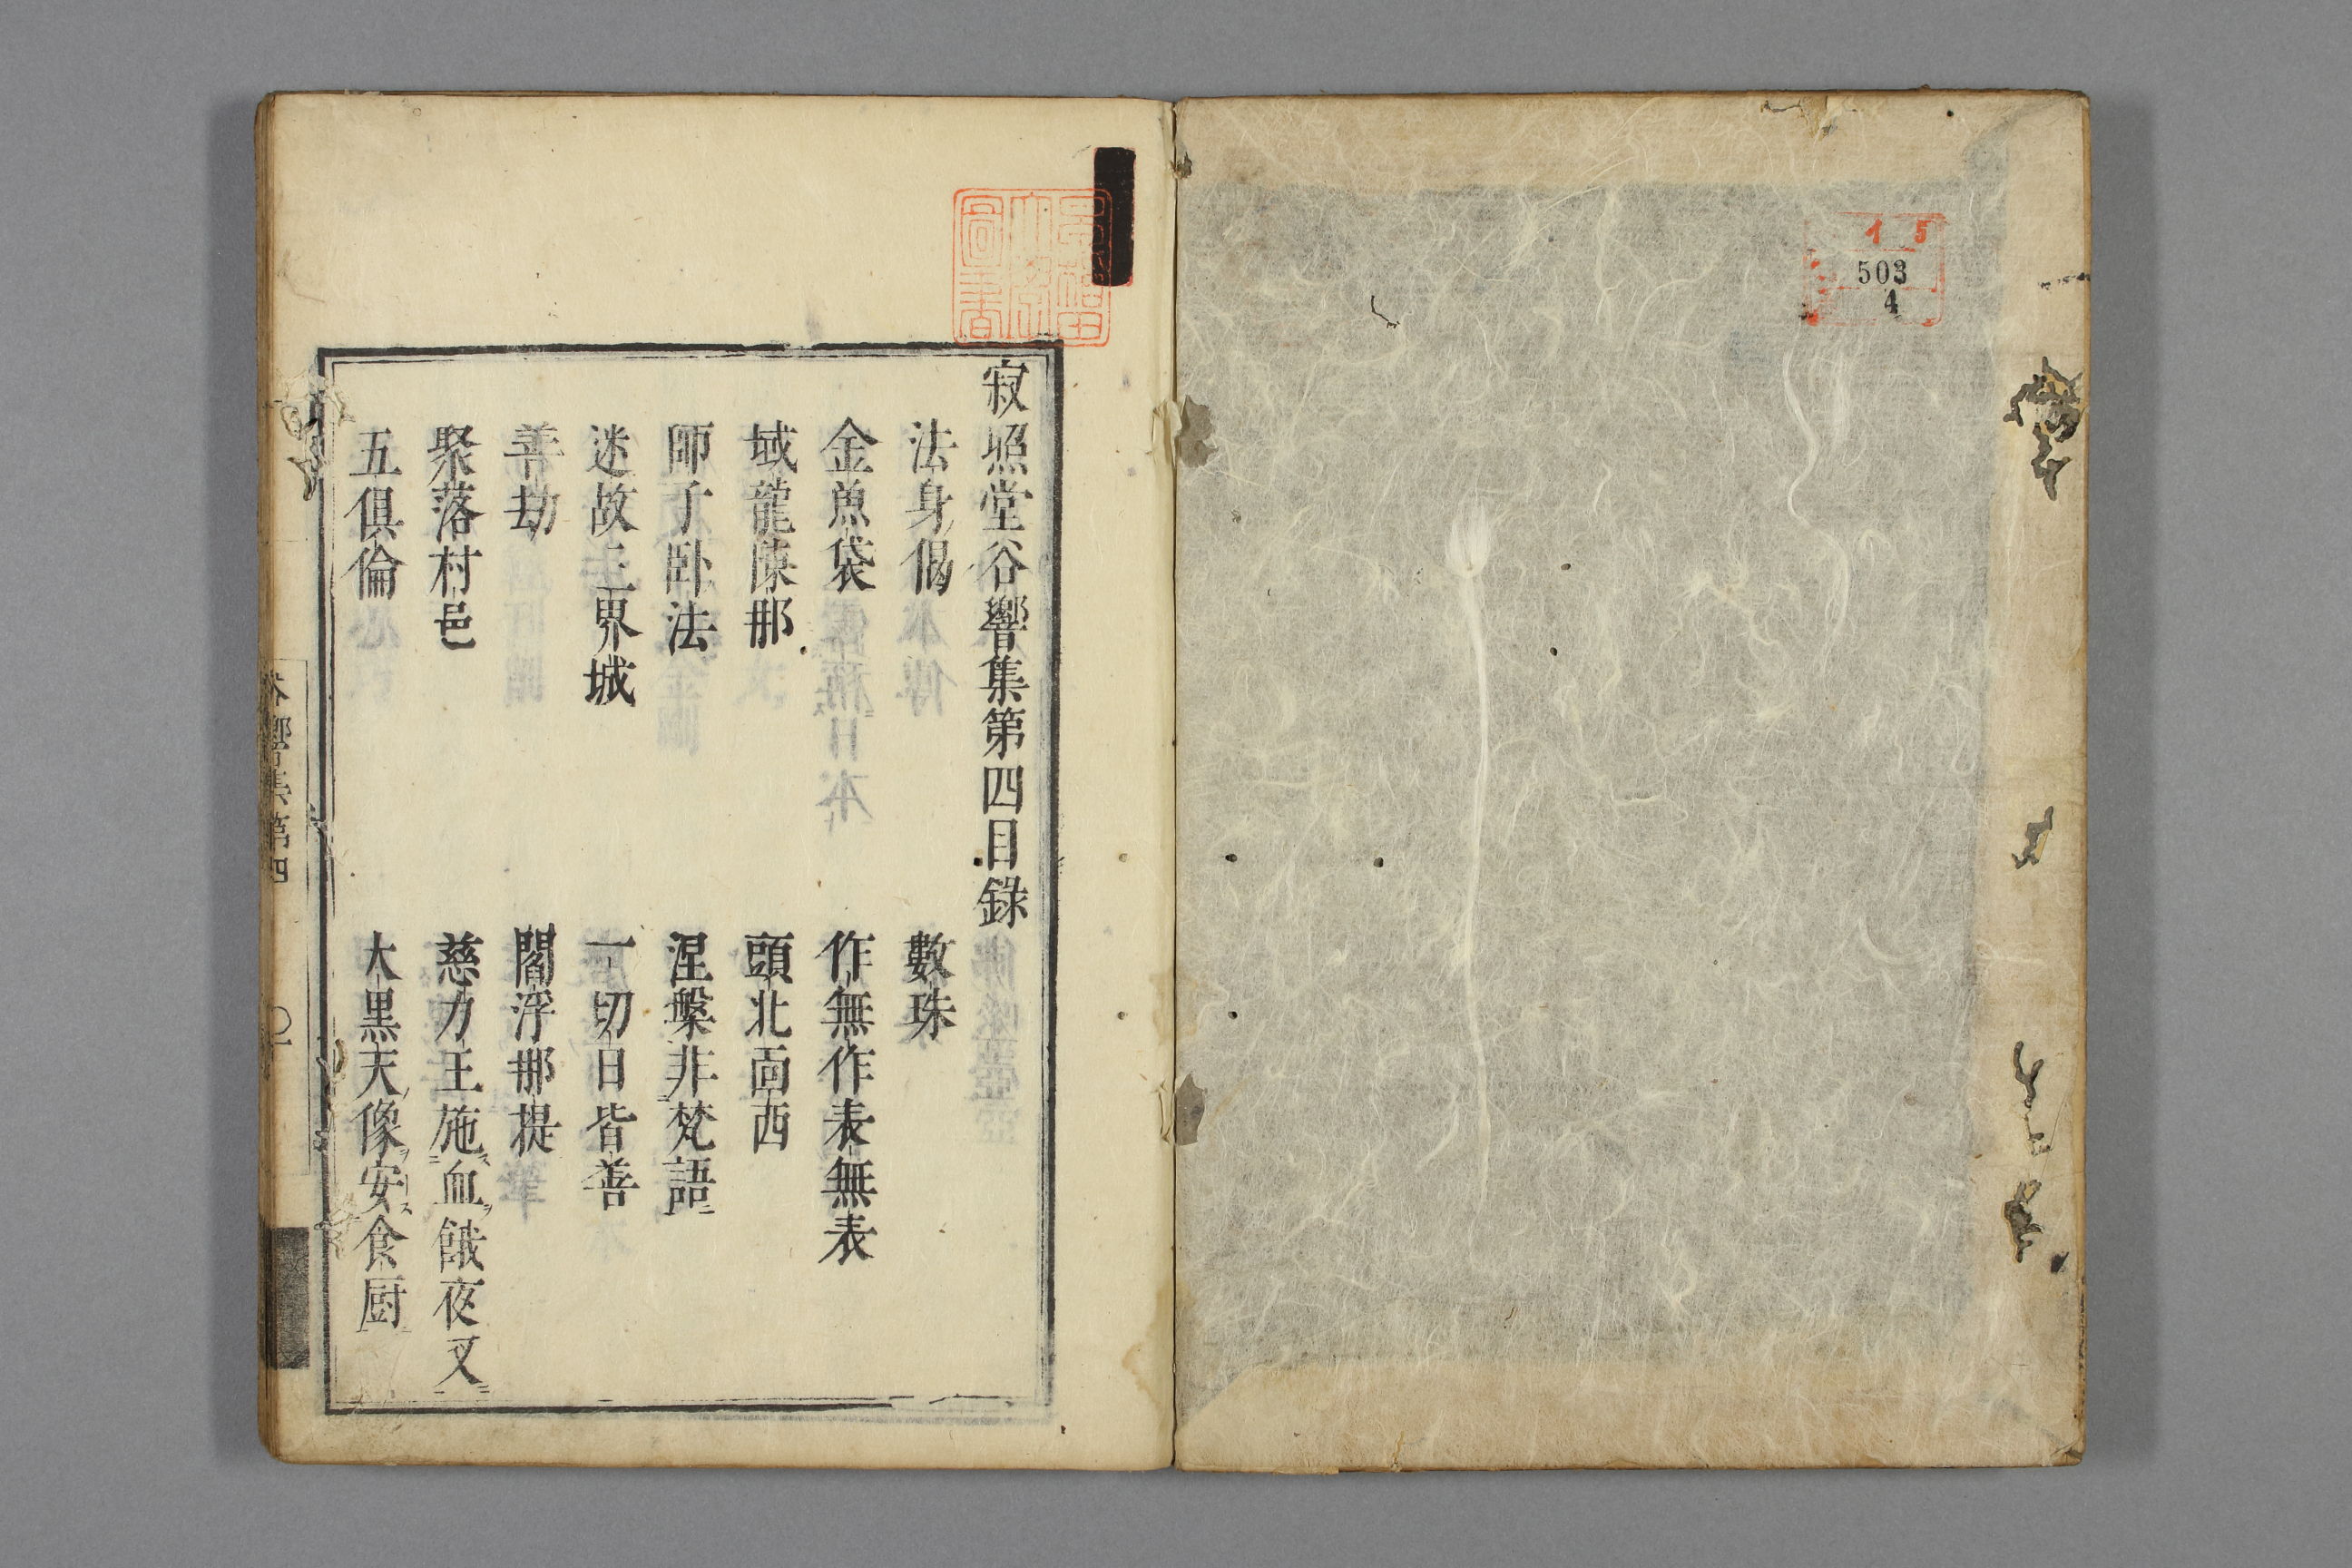 1 5
503
4
寂照堂谷響集第四目錄
法身偈 數珠
金魚袋 作無作表無表
域龍陳那 頭北面西
師子臥法 涅槃非梵語
迷故三界城 一切日皆善
善劫 閻浮那提
聚落村邑 慈力王施血餓夜叉
五俱倫 大黑天像安食厨
谷響集第四
〇一